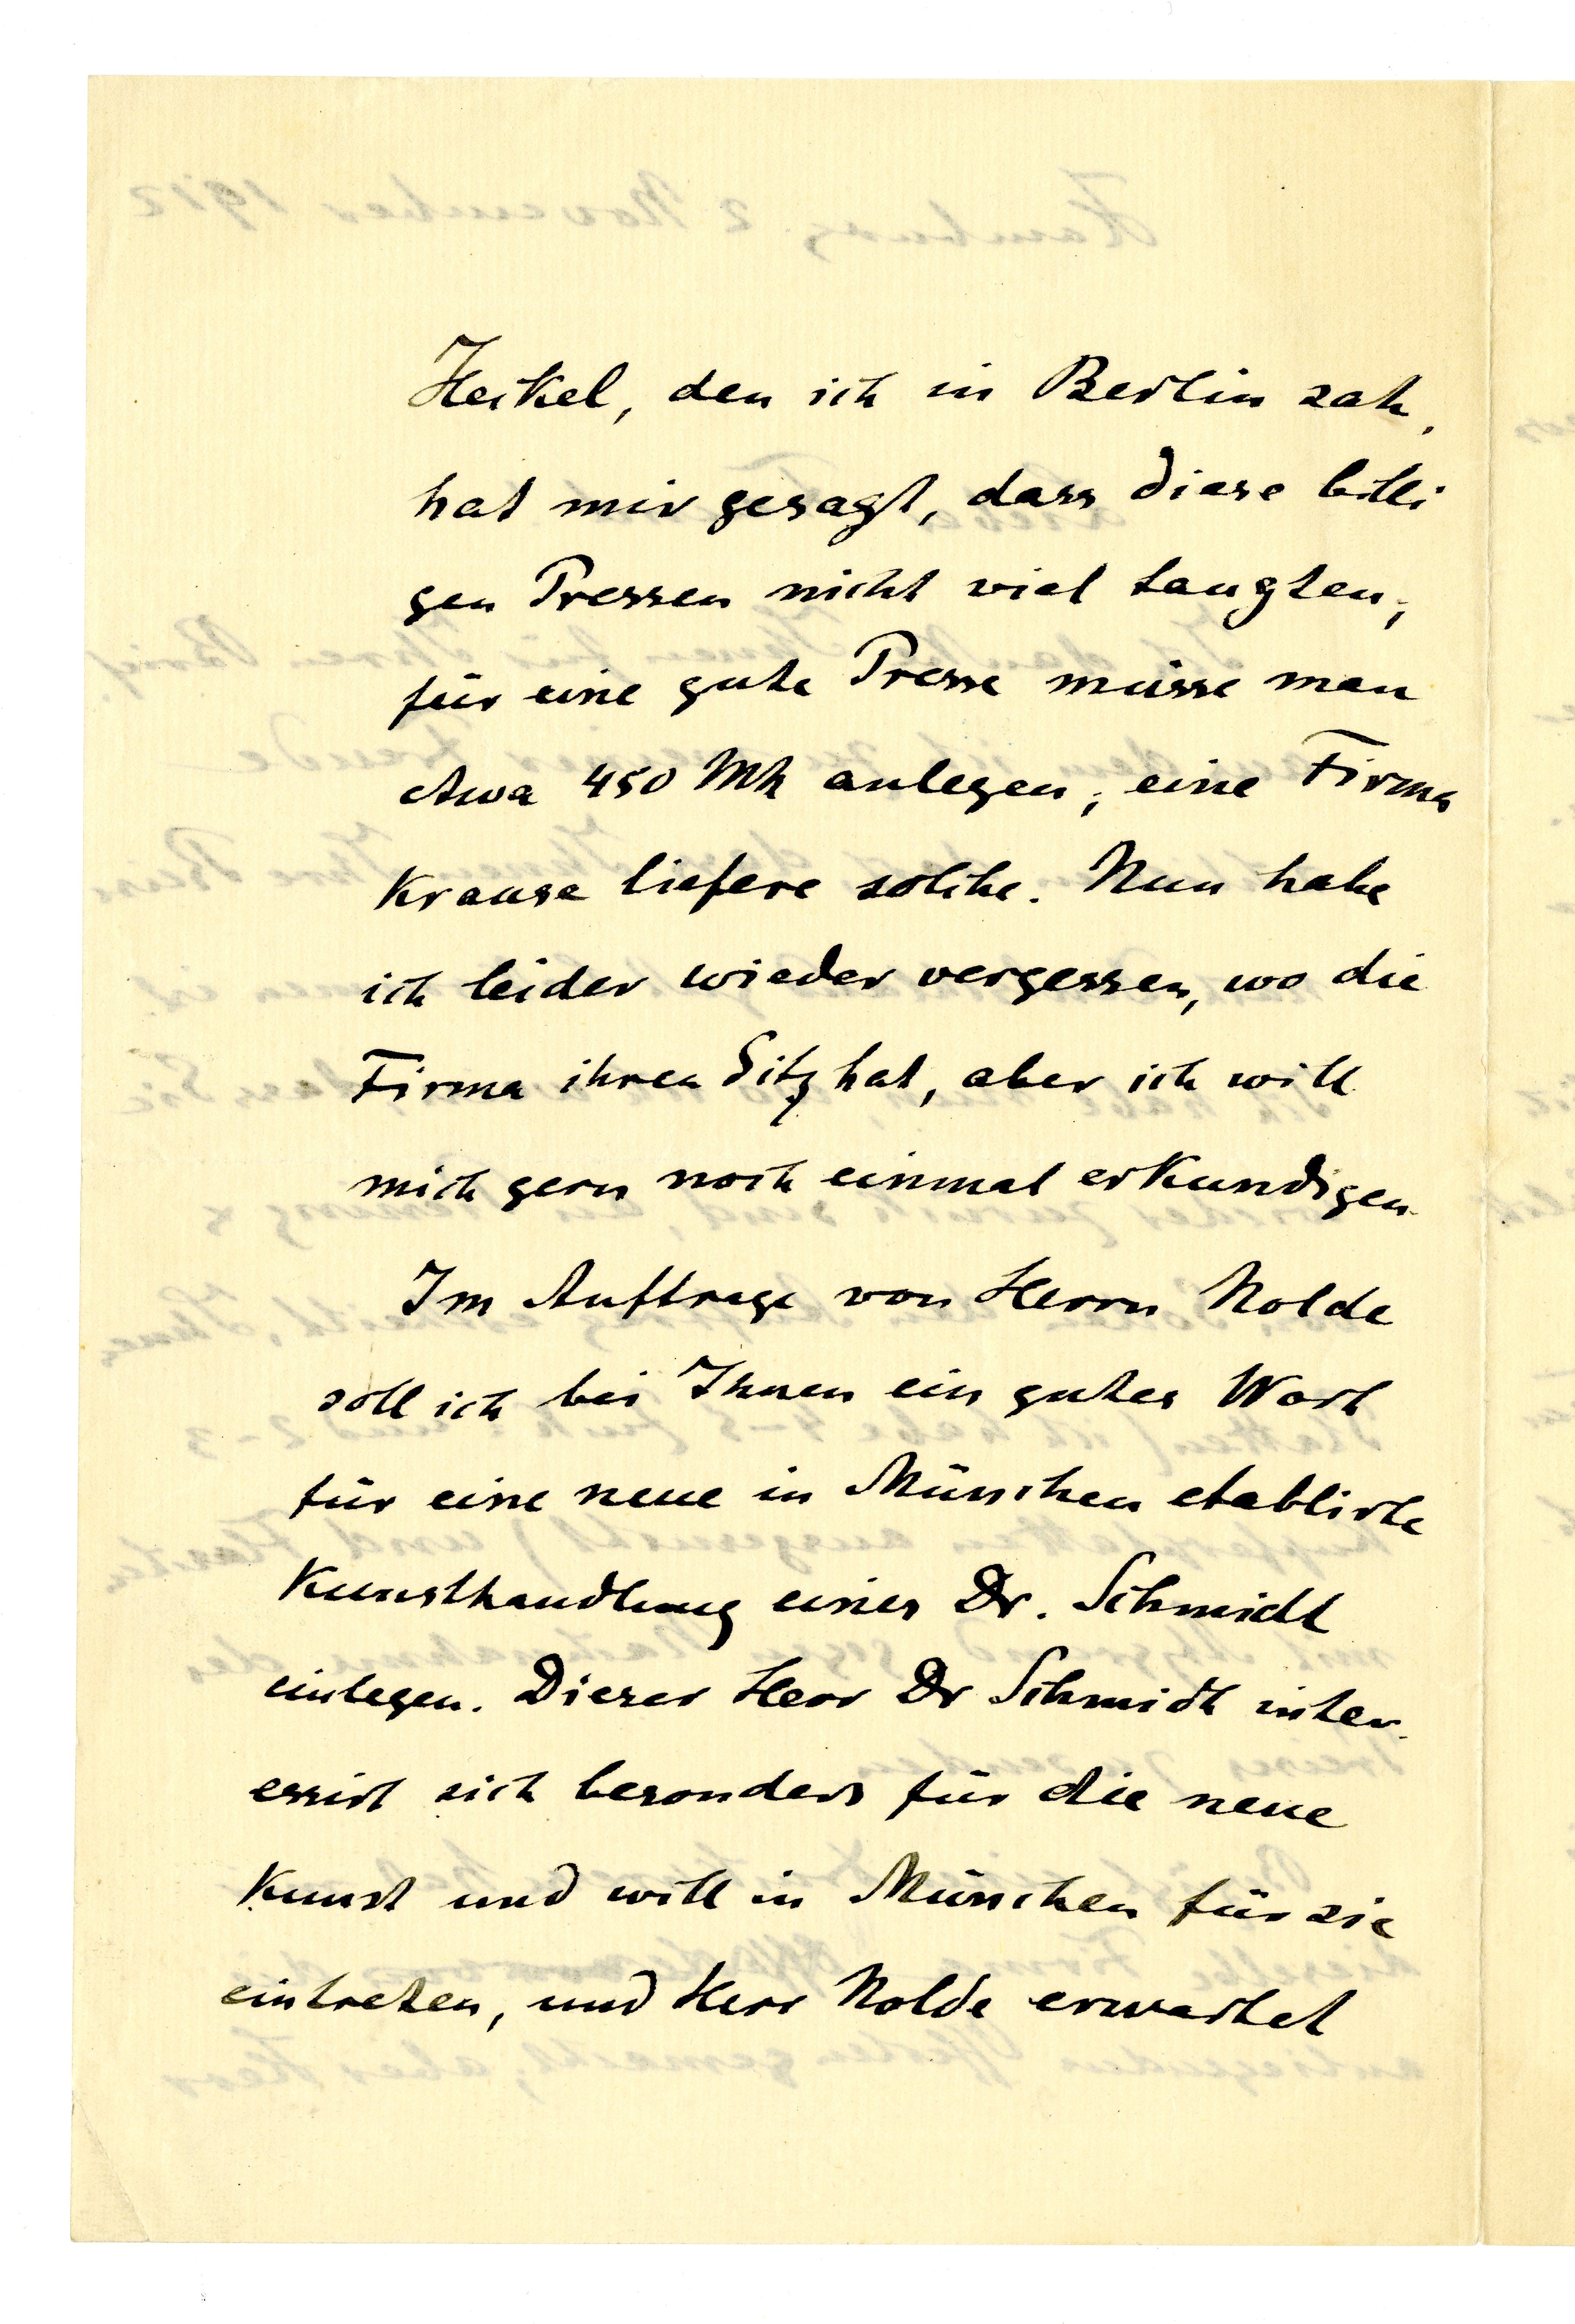 Heckel, den ich in Berlin sah,
hat mir gesagt, dass diese billi
gen Pressen nicht viel taugten,
für eine gute Presse müsse man
etwa 450 Mk anlegen, eine Firma
Krause liefere solche. Nun habe
ich leider wieder vergessen, wo die
Firma ihren Sitz hat, aber ich will
mich gern noch einmal erkundigen.
Im Auftrage von Herrn Nolde
soll ich bei Ihnen ein gutes Wort
für eine neue in München etablirte
Kunsthandlung eines Dr. Schmidt
einlegen. Dieser Herr Dr Schmidt inter-
essirt sich besonders für die neue
Kunst und will in München für sie
eintreten, und Herr Nolde erwartet